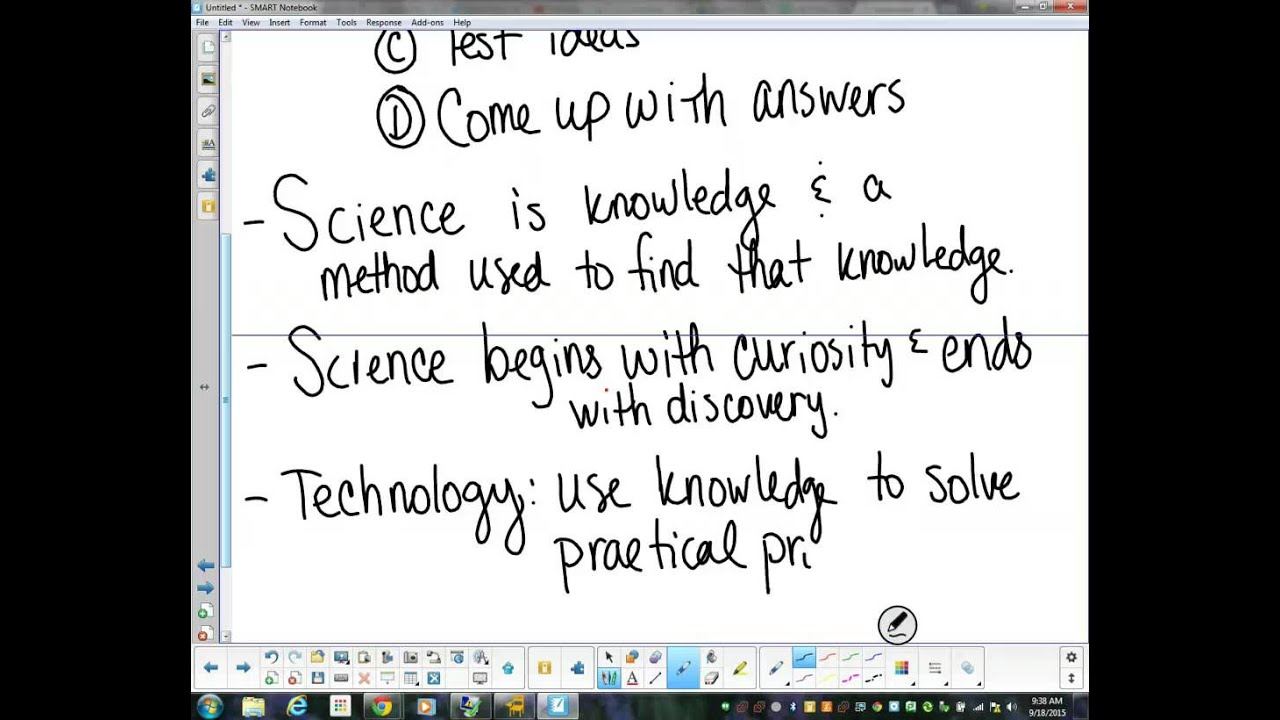 Untitled * - SMART Notebook
File Edit View Insert Format Tools Response Add-ons Help
C Test ideas
D Come up with answers
- Science is knowledge & a
method used to find that knowledge.
- Science begins with curiosity & ends
with discovery.
- Technology: use knowledge to solve
practical pr
9:38 AM
9/18/2015